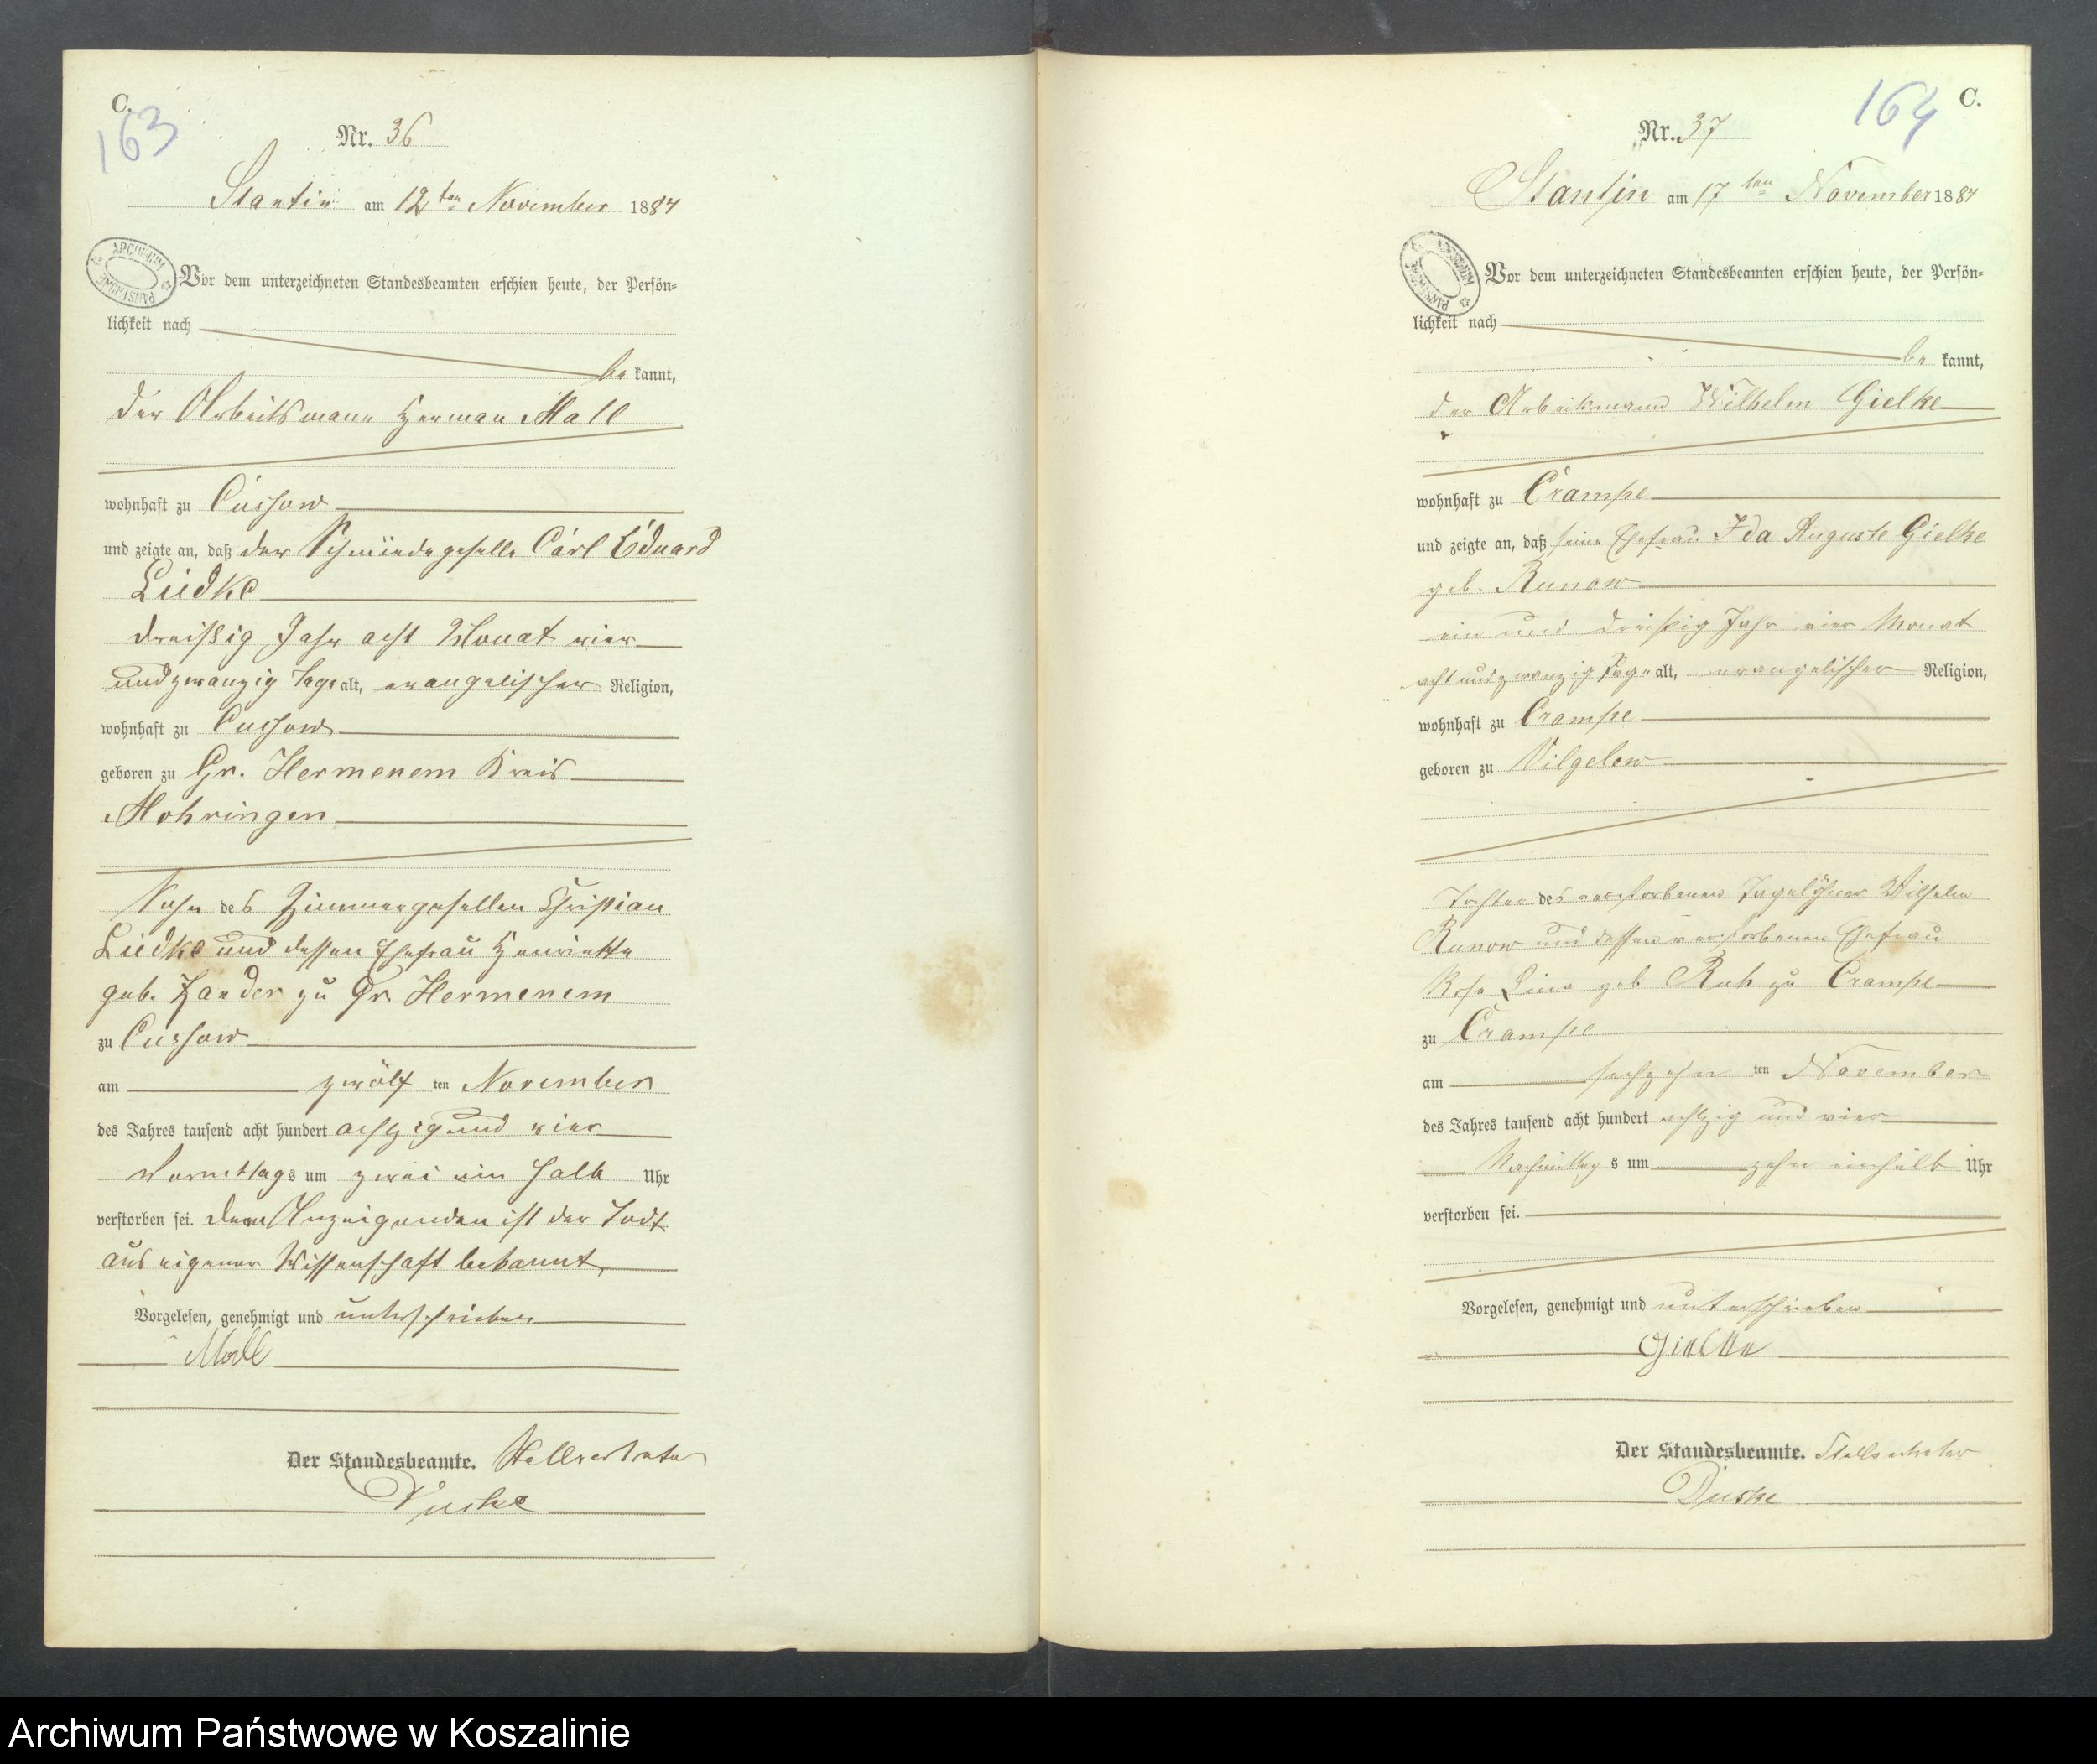 C.
163
Nr. 36
Stantin am 12ten November 1884
Vor dem unterzeichneten Standesbeamten erschien heute, der Persön-
lichkeit nach
be kannt,
der Arbeitsmann Herman Mall
wohnhaft zu Cussow
und zeigte an, daß der Schmiedegeselle Carl Eduard
Liedke
dreißig Jahr acht Monat vier
undzwanzig Tage alt, evangelischer Religion,
wohnhaft zu Cussow
geboren zu Gr. Hermenem Kreis
Mohringen
Sohn des Zimmergesellen Christian
Liedke und dessen Ehefrau Henriette
geb. Zander zu Gr. Hermenem
zu Cussow
am zwölf ten November
des Jahres tausend acht hundert achtzig und vier
Vormittags um zwei ein halb Uhr
verstorben sei. Dem Anzeigenden ist der Todt
aus eigener Wissenschaft bekannt,
Vorgelesen, genehmigt und unterschrieben
Mall
Der Standesbeamte. Stellvertreter
ARCHIWUM PAŃSTWOWE
C.
164
Nr. 37
Stantin am 17ten November 1884
Vor dem unterzeichneten Standesbeamten erschien heute, der Persön-
lichkeit nach
be kannt,
der Arbeitsmann Wilhelm Gielke
wohnhaft zu Crampe
und zeigte an, daß seine Ehefrau Ida Auguste Gielke
geb. Runow
ein und dreißig Jahr vier Monat
acht und zwanzig Tage alt, evangelischer Religion,
wohnhaft zu Crampe
geboren zu Vilgelow
Tochter des verstorbenen Tagelöhner Wilhelm
Runow und dessen verstorbenen Ehefrau
Lina geb Ruh zu Crampe
zu Crampe
am sechzehn ten November
des Jahres tausend acht hundert achtzig und vier
Nachmittag s um zehn einhalb Uhr
verstorben sei.
Vorgelesen, genehmigt und unterschrieben
Gielke
Der Standesbeamte. Stellvertreter
ARCHIWUM PAŃSTWOWE
Archiwum Państwowe w Koszalinie